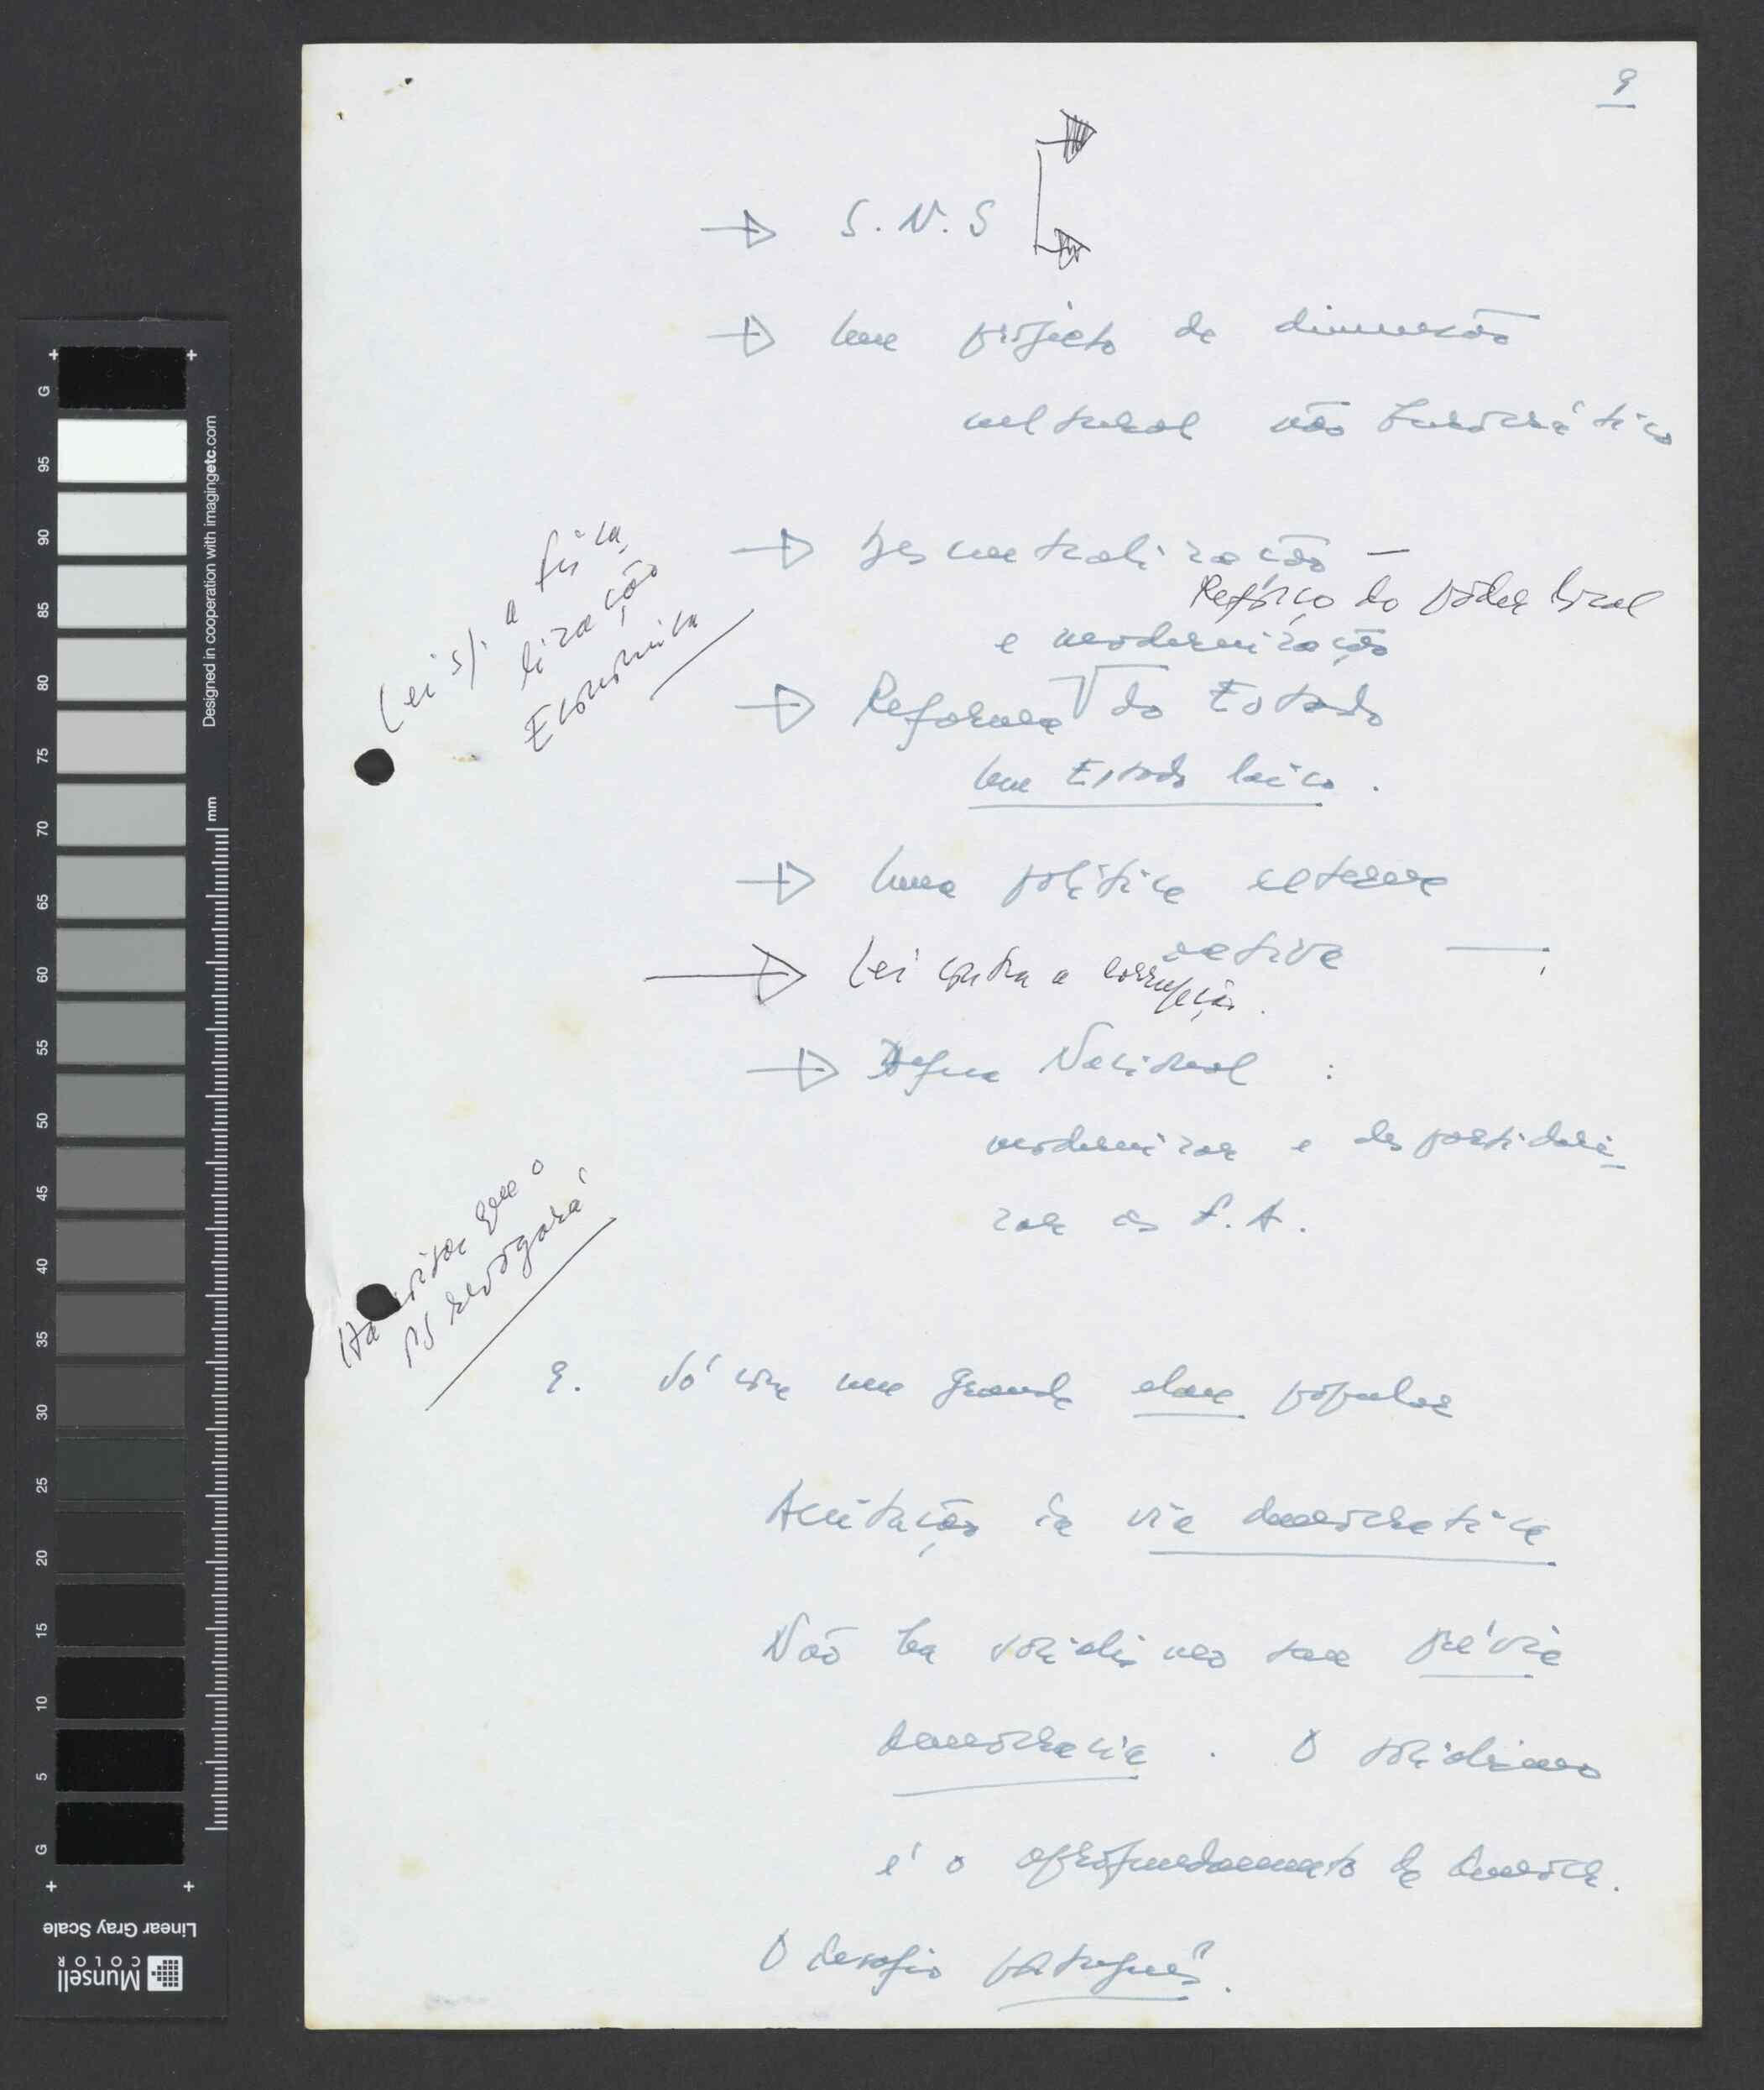 9
→ S. N. S
→ Um projecto de dimensão
cultural não burocrático
→ Descentralização —
Refôrço do poder local
Lei s/. a fisca
lização
Económica
e modernização
→ Reforma do Estado
Um Estado laico.
→ Uma política externa
activa —
→ Lei contra a corrupção.
→ Defesa Nacional :
modernizar e despartidari-
zar as F. A.
que o
PS revogará
9. Só com um grande elan popular
Aceitação da via democratica
Não ha socialismo sem prévia
democracia. O socialismo
é o aprofundamento da democr.
O desafio português.
G
95
90
85
80
75
70
65
60
55
50
45
40
35
30
25
20
15
10
5
G
mm
Designed in cooperation with imagingetc.com
Linear Gray Scale
Munsell
COLOR